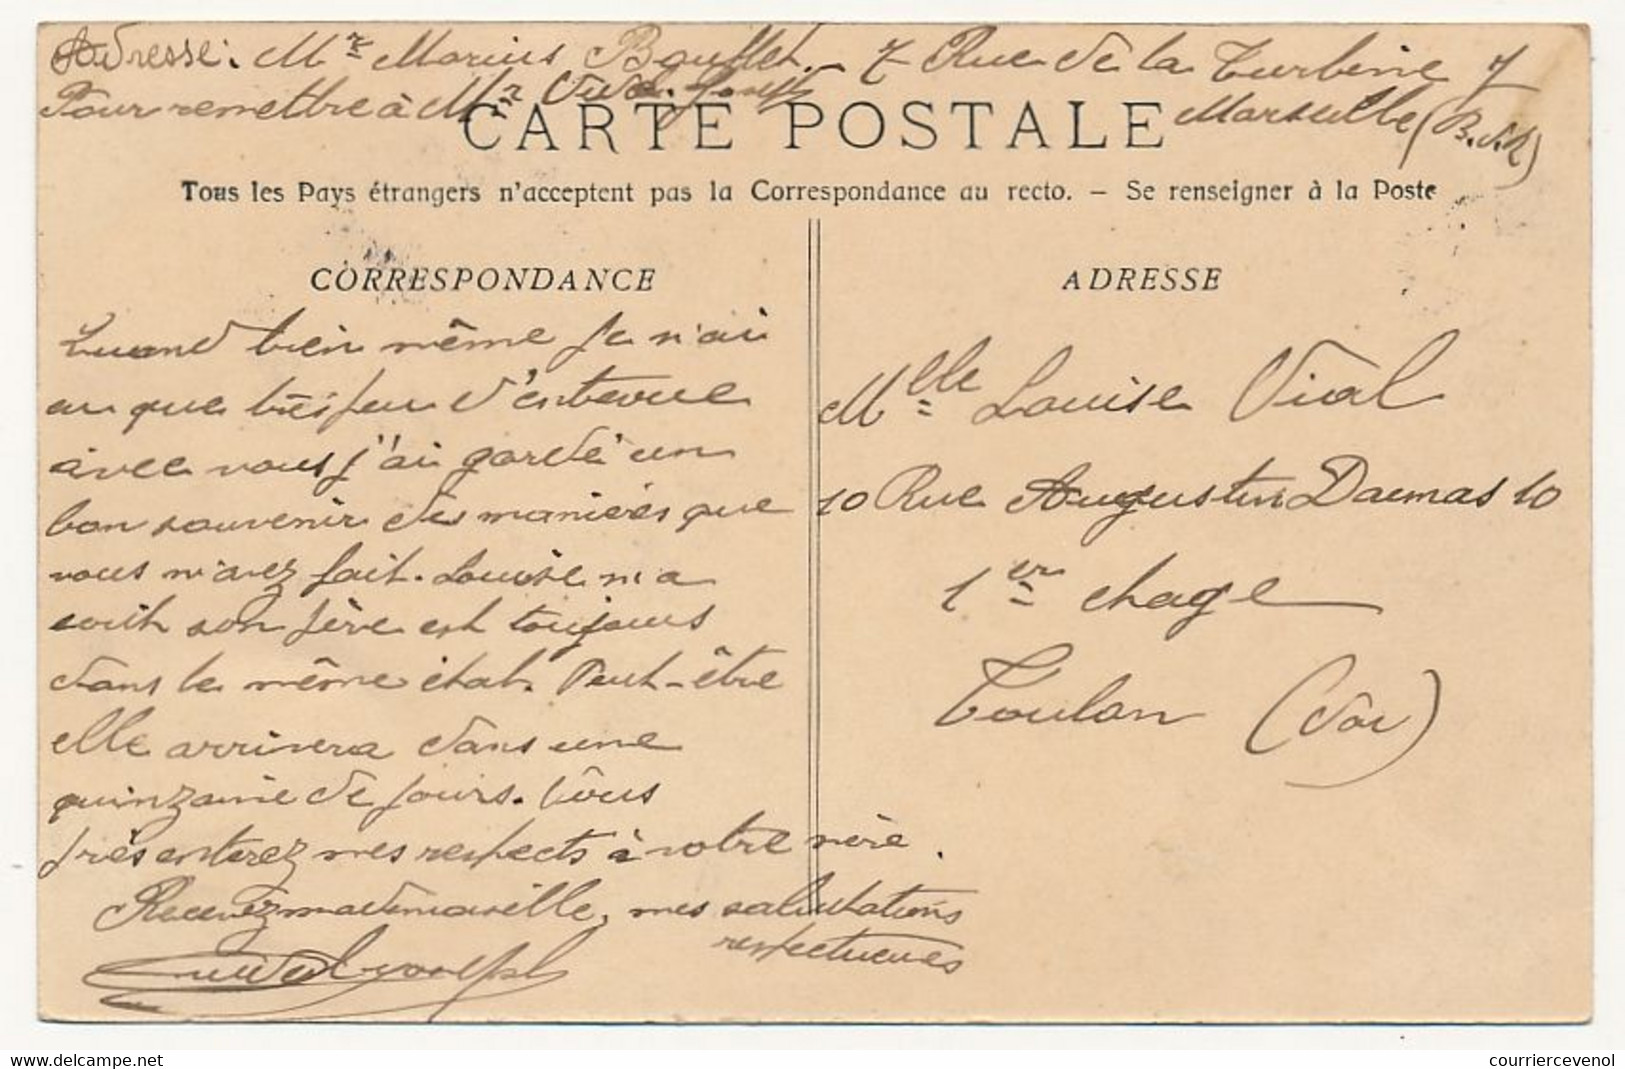 Adresse: Mr Marius Boufflet. - 7 Rue de la Turbine 7
Pour remettre à Mr Vidal Joseph Marseille (B.d.R)
CARTE POSTALE
Tous les Pays étrangers n'acceptent pas la Correspondance au recto. – Se renseigner à la Poste
CORRESPONDANCE
Quand bien même je n'ai
eu que très peu d'entrevue
avec vous j'ai gardé un
bon souvenir des manières que
vous m'avez fait. Louise m'a
écrit son père est toujours
dans le même état. Peut-être
elle arrivera dans une
quinzaine de jours. Vous
présenterez mes respects à votre mère.
Recevez mademoiselle, mes salutations
respectueuses
Vidal Joseph
ADRESSE
Melle Louise Vial
10 Rue Augustin Daumas 10
1er etage
Toulon (Var)
© www.delcampe.net
courriercevenol